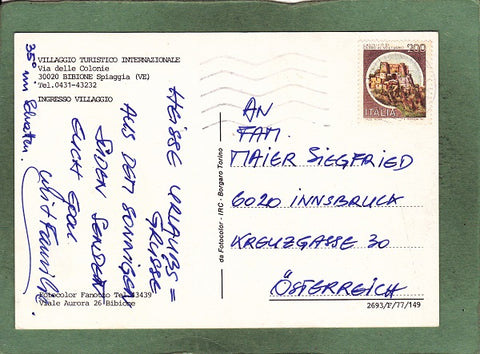 VILLAGGIO TURISTICO INTERNAZIONALE
Via delle Colonie
30020 BIBIONE Spiaggia (VE)
Tel.0431-43232
INGRESSO VILLAGGIO
HEISSE URLAUBS=
GRÜSSE
AUS DEM SONNIGEN
SÜDEN SENDEN
EUCH
mit Familie.
35° im Schatten.
Fotocolor Fanotto Tel.43439
Viale Aurora 26 Bibione
da Fotocolor - IRC - Borgaro Torino
200
ITALIA
AN
FAM.
MAIER SIEGFRIED
6020 INNSBRUCK
KREUZGASSE 30
ÖSTERREICH
2693/F/77/149